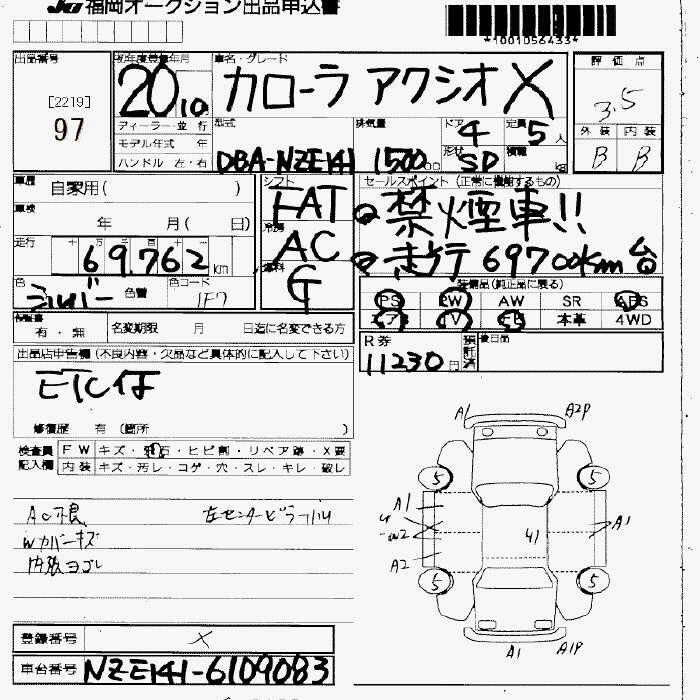 JU 福岡オークション出品申込書
*1001056433*
出品番号
[2219]
97
初年度登録年月
20 10月
車名・グレード
カローラ アクシオ X
評価点
3.5
外装 内装
B B
ディーラー・並行
モデル年式 年
ハンドル 左・右
型式
DBA-NZE141
排気量
1500 CC
ドア
4
形状
SD
定員
5人
積載
kg
車歴
自家用( )
車検
年 月( 日)
走行
十 万 千 百 十 一
69,762 km
色
シルバー
色替
色コード
1F7
シフト
FAT
冷房
AC
燃料
G
セールスポイント (正常に機能するもの)
禁煙車!!
走行 69700km台
装備品(純正品に限る)
PS PW AW SR ABS
エアB TV 本革 4WD
保証書
有・無
名変期限 月 日迄に名変できる方
R券
11230円
預託済
後日品
出品店申告欄(不良内容・欠品など具体的に記入して下さい)
ETC付
修復歴 有 (箇所 )
検査員記入欄
FW キズ・飛石・ヒビ割・リペア跡・X要
内装 キズ・汚レ・コゲ・穴・スレ・キレ・破レ
AC不良
左センターピラー
Wカバーキズ
内張ヨゴレ
A1 A2P
5 5
A1
A1
A2
5 5
A1 A1P
登録番号
X
車台番号
NZE141-6109083